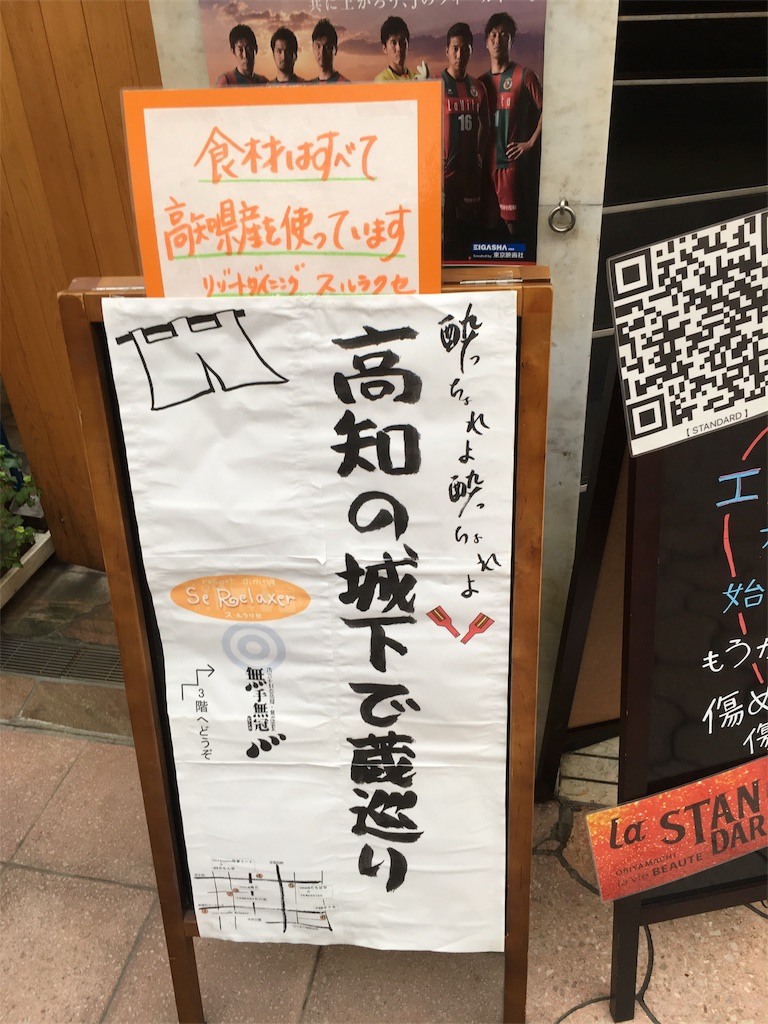 共に上がろう、Jのフィールドへ
LaVita
16
EIGASHA
東京映画社
食材はすべて
高知県産を使っています
リゾートダイニング スルラクセ
酔っちょれよ酔っちょれよ
高知の城下で蔵巡り
Se Relaxer
スルラクセ
無手無冠
3階へどうぞ
【STANDARD】
エ
始
もうか
傷め
傷
la STAN
DAR
OBIYAMACHI
la vie BEAUTE